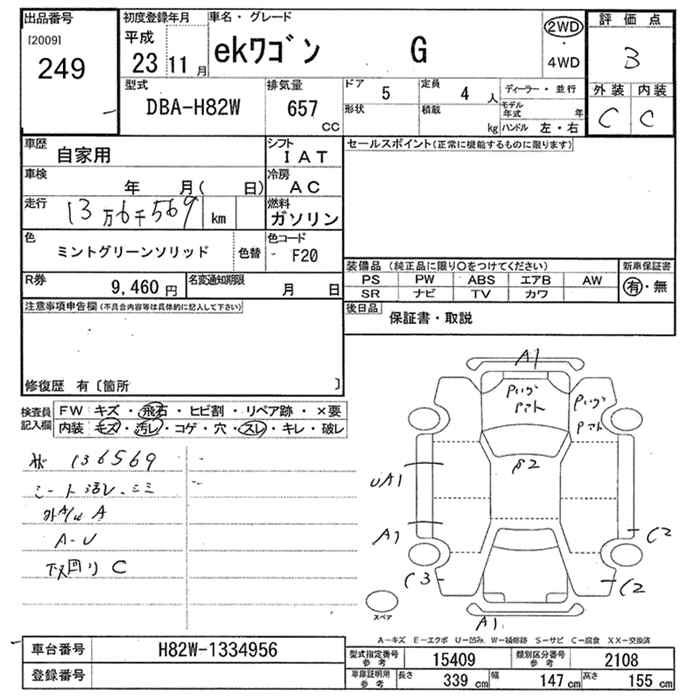 出品番号
[2009]
249
初度登録年月
平成
23 11 月
車名・グレード
ekワゴン G
2WD
・
4WD
評価点
3
外装 内装
C C
型式
DBA-H82W
排気量
657
cc
ドア 5
定員 4 人
ディーラー・並行
形状
積載 kg
モデル年式 年
ハンドル 左・右
車歴
自家用
シフト
IAT
セールスポイント(正常に機能するものに限ります)
車検
年 月( 日)
冷房
AC
走行
13万6千569 km
燃料
ガソリン
色
ミントグリーンソリッド
色替
色コード
- F20
R券
9,460 円
名変通知期限
月 日
装備品 (純正品に限り○をつけてください)
新車保証書
PS PW ABS エアB AW
有・無
SR ナビ TV カワ
後日品
保証書・取説
注意事項申告欄(不具合内容等は具体的に記入して下さい)
修復歴 有〔箇所 〕
検査員記入欄
FW キズ・飛石・ヒビ割・リペア跡・×要
内装 キズ・汚レ・コゲ・穴・スレ・キレ・破レ
136569
シート汚レ・シミ
A
A-U
下回り C
A1
UA1
A1
C3
C2
C2
A1
スペア
A-キズ E-エクボ U-凹み W-補修跡 S-サビ C-腐食 XX-交換済
車台番号
H82W-1334956
登録番号
型式指定番号参考
15409
類別区分番号参考
2108
車庫証明用参考
長さ 339 cm
幅 147 cm
高さ 155 cm